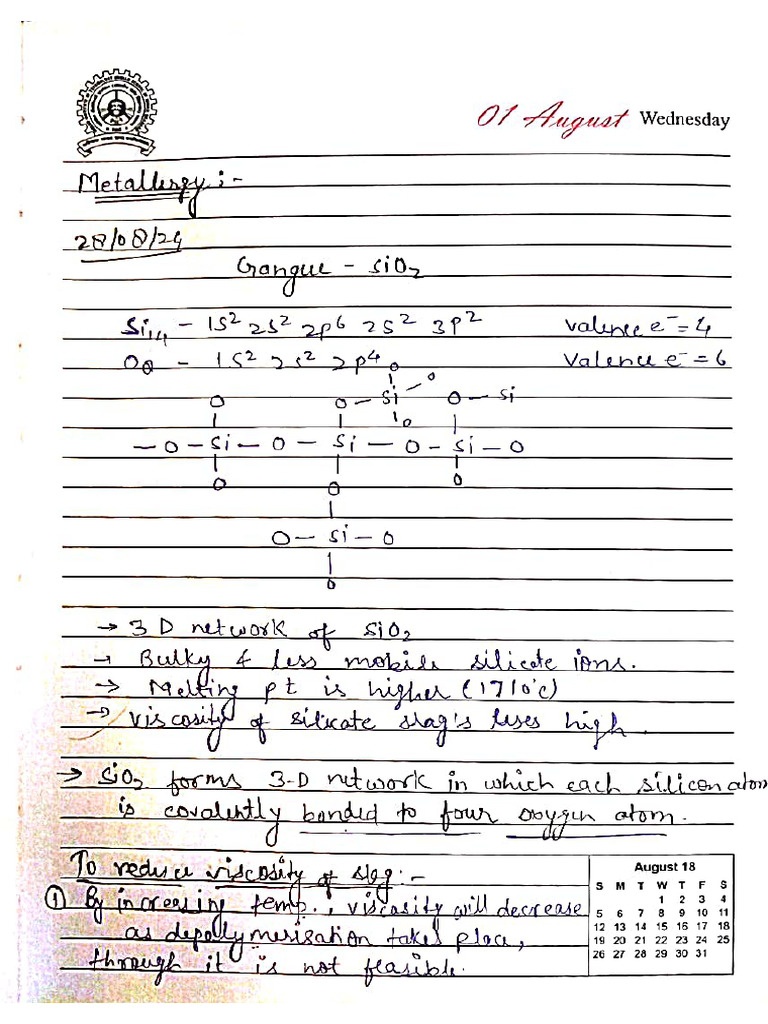 01 August Wednesday
Metallergy :-
28/08/24
Gangue - SiO2
Si14 - 1S2 2S2 2p6 2S2 3p2 valence e- = 4
O8 - 1S2 2S2 2p4 Valence e- = 6
O
O
O O - Si O - Si
O
- O - Si - O - Si - O - Si - O
O O O
O - Si - O
O
→ 3 D network of SiO2
→ Bulky & less mobile silicate ions.
→ Melting pt is higher (1710°C)
→ viscosity of silicate slag's high.
→ SiO2 forms 3-D network in which each silicon atom
is covalently bonded to four oxygen atom.
To reduce viscosity of slag :-
① By increasing temp., viscosity will decrease
as depolymerisation takes place,
through it is not feasible.
August 18
S M T W T F S
1 2 3 4
5 6 7 8 9 10 11
12 13 14 15 16 17 18
19 20 21 22 23 24 25
26 27 28 29 30 31